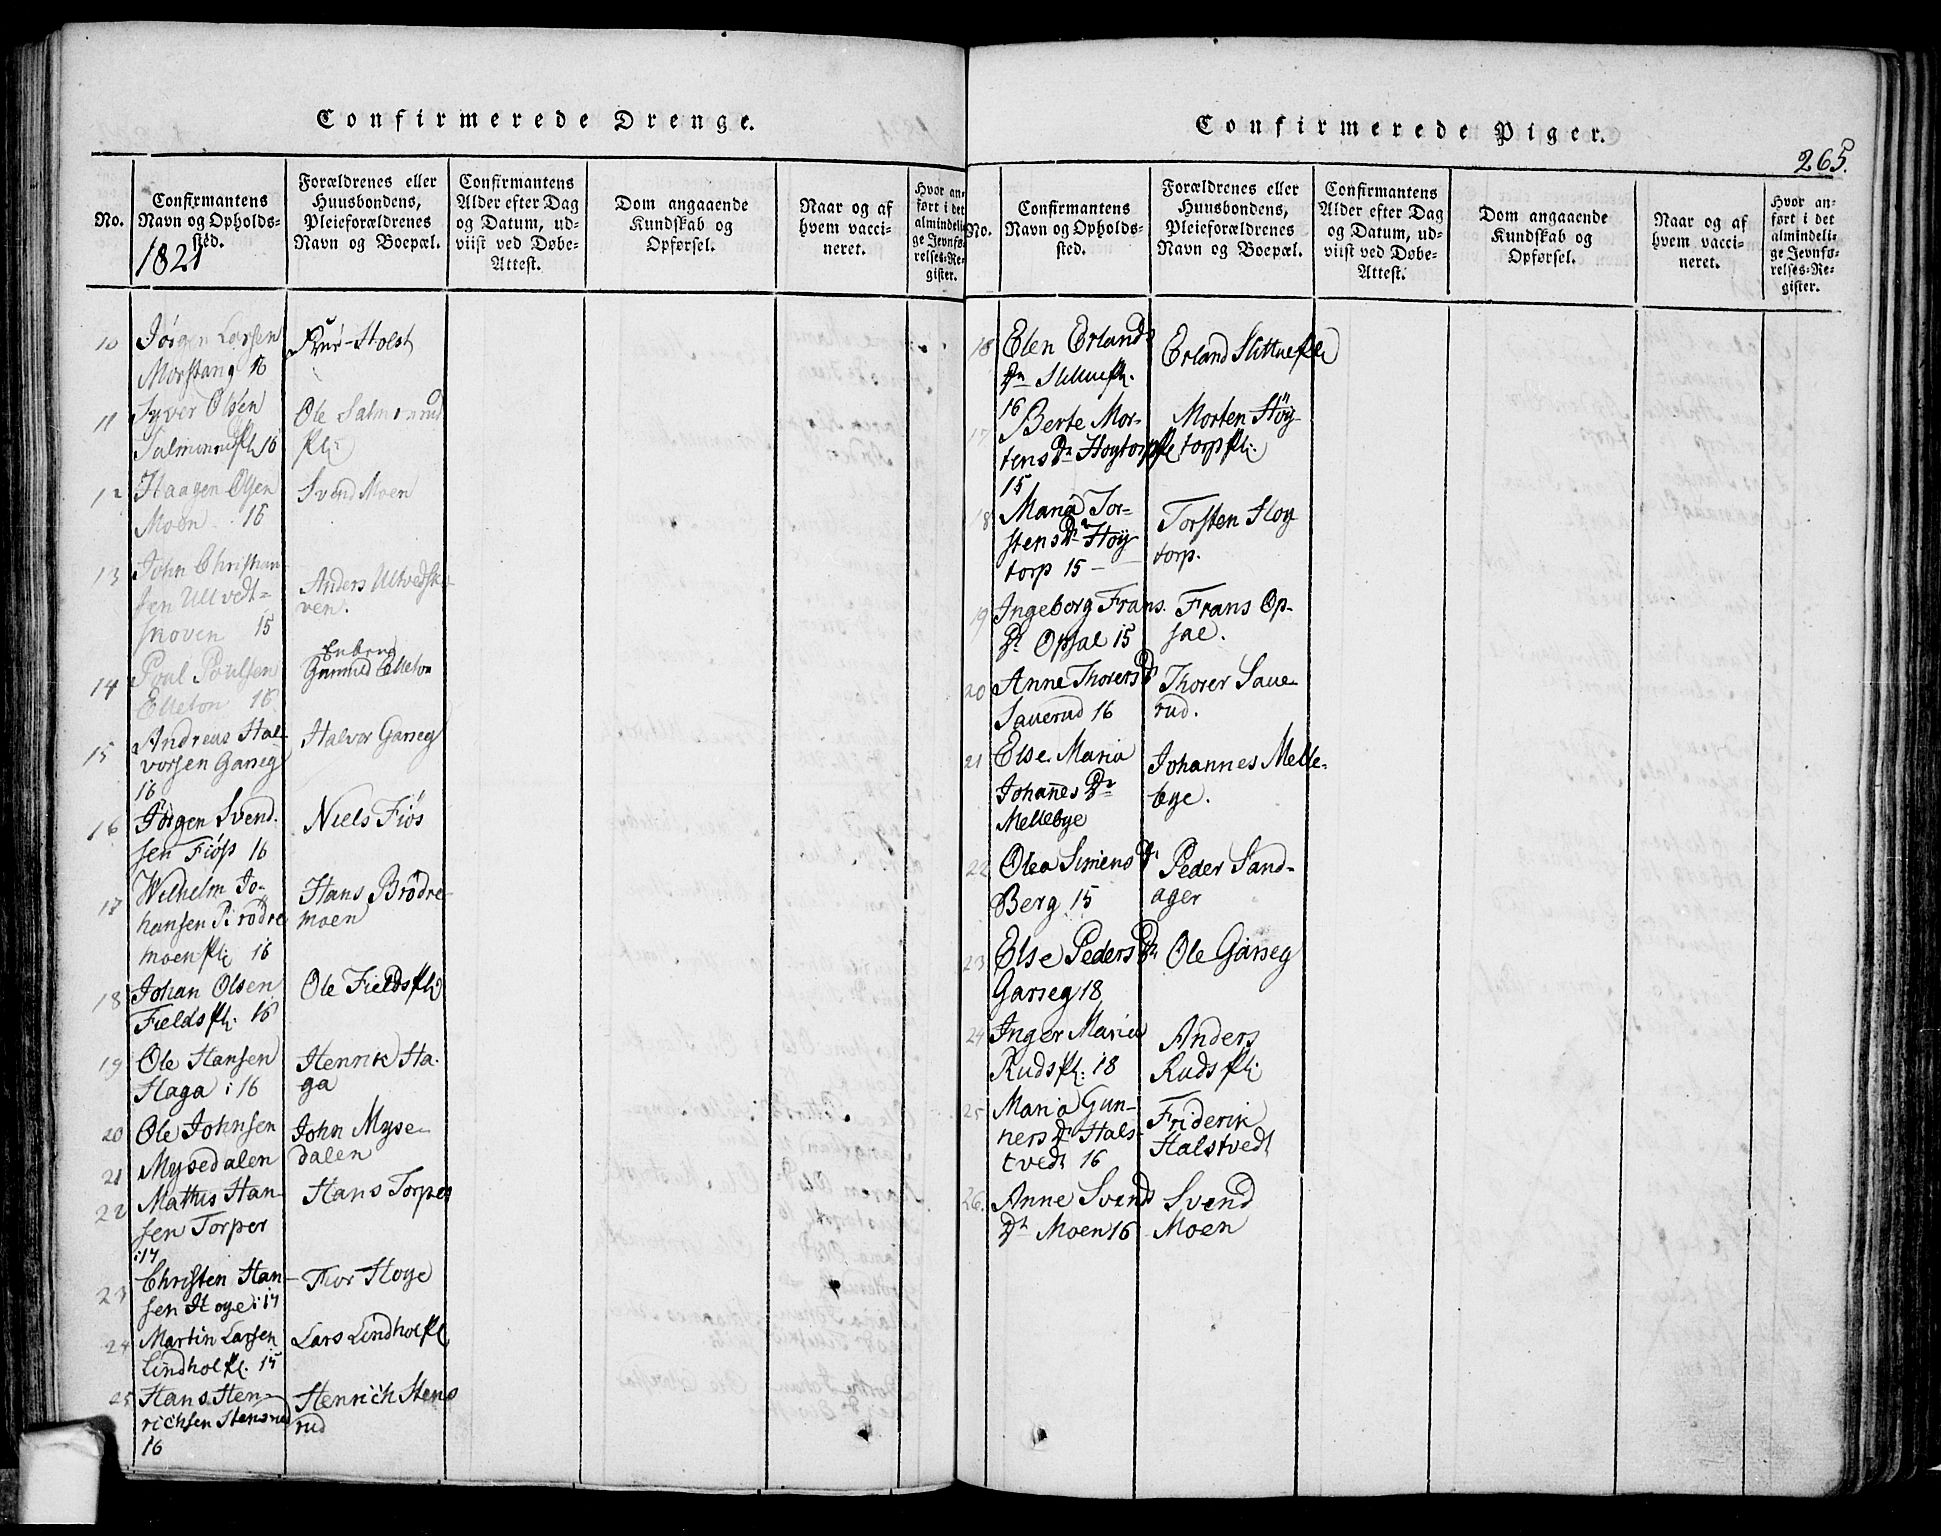 Confirmerede Drenge.
No.
Confirmantens
Navn og Opholds-
sted.
1821
Forældrenes eller
Huusbondens,
Pleieforældrenes
Navn og Boepæl.
Confirmantens
Alder efter Dag
og Datum, ud-
viist ved Døbe-
Attest.
Dom angaaende
Kundskab og
Opførsel.
Naar og af
hvem vacci-
neret.
Hvor an-
ført i det
almindeli-
ge Jevnfø-
relses-Re-
gister.
10 Jörgen Larsen
Morstang 16
Holst
11 Syver Olsen
16
Ole
Pl:
12 Haagen Olsen
Moen 16
Svend Moen
13 John Christian-
sen Ultvedt-
skoven 15
Anders Ultvedsko-
ven.
14 Poul Poulsen
Elleton 16
Enberg
Gunnild Elleton
15 Andreas Hal-
vorsen Garseg
16
Halvor Garseg
16 Jörgen Svend-
sen Fiös 16
Niels Fiös
17 Wilhelm Jo-
hansen Brödre
moen pl: 16
Hans Brödre-
moen
18 Johan Olsen
Fields pl: 16
Ole Fields pl:
19 Ole Hansen
Haga : 16
Henrik Ha-
ga
20 Ole Johnsen
21 Mysedalen
John Myse-
dalen
22 Mathis Han-
sen Torper
:17
Hans Torper
23 Christen Han-
sen Hoye : 17
Thor Hoye
24 Martin Larsen
Lindhol pl. 15
Lars Lindhol pl
25 Hans Hen-
richsen Stensrud
16
Henrich Stens
rud
Confirmerede Piger.
265.
No.
Confirmantens
Navn og Opholds-
sted.
Forældrenes eller
Huusbondens,
Pleieforældrenes
Navn og Boepæl.
Confirmantens
Alder efter Dag
og Datum, ud-
viist ved Døbe-
Attest.
Dom angaaende
Kundskab og
Opførsel.
Naar og af
hvem vacci-
neret.
Hvor an-
ført i det
almindeli-
ge Jevnfø-
relses-Re-
gister.
Elen Erlands
Dr Slittue pl.
16
Erland Slittue pl:
17 Berte Mor-
tens Dr Hoytorp pl
15
Morten Höy
torp pl:
18 Maria Tor-
stens Dr Höy
torp 15 -
Torsten Hoy
torp.
19 Ingeborg Frans
Dr Opsal 15
Frans Op-
sal.
20 Anne Thorers Dr
Sauerud 16
Thorer Saue-
rud.
21 Else Maria
Johanes Dr
Mellebye
Johannes Melle-
bye.
22 Olea Simens Dr
Berg 15
Peder Sand-
ager
23 Else Peders Dr
Garseg 18
Ole Garseg
24 Inger Maria
Ruds pl: 18
Anders
Ruds pl:
25 Maria Gun-
ners Dr Hals-
tvedt 16
Friderik
Halstvedt
26. Anne Svend
Dr Moen 16
Svend
Moen